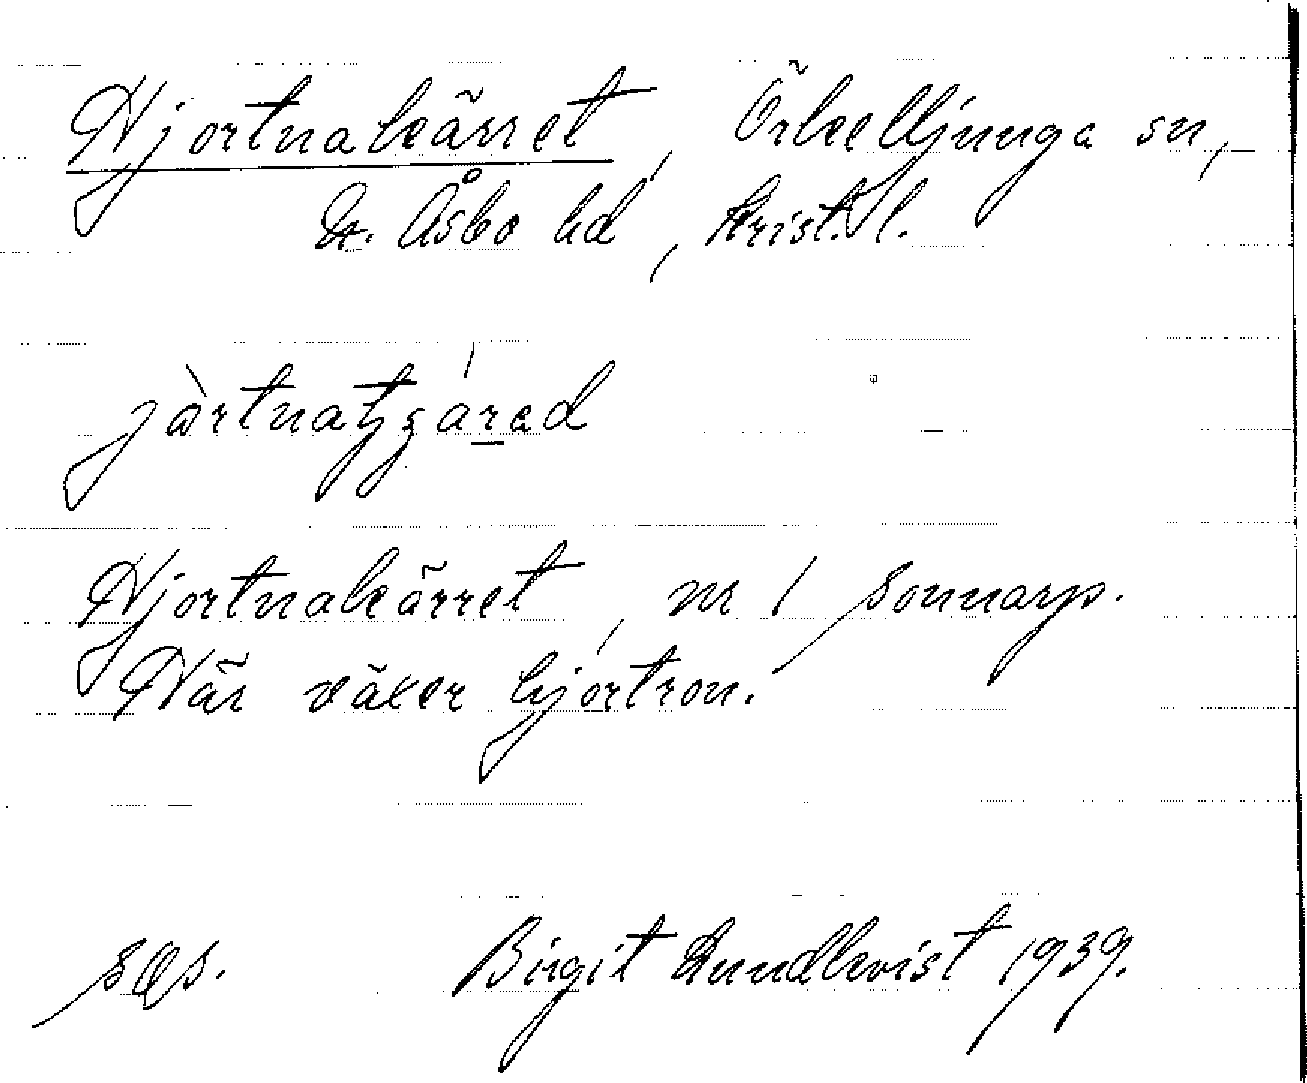 Hjortnakärret, Örkelljunga sn,
N. Åsbo hd, Krist. l.
Hjortnakärret, nr 1 Sonnarp.
Där växer hjortron.
Birgit Lundkvist 1939.